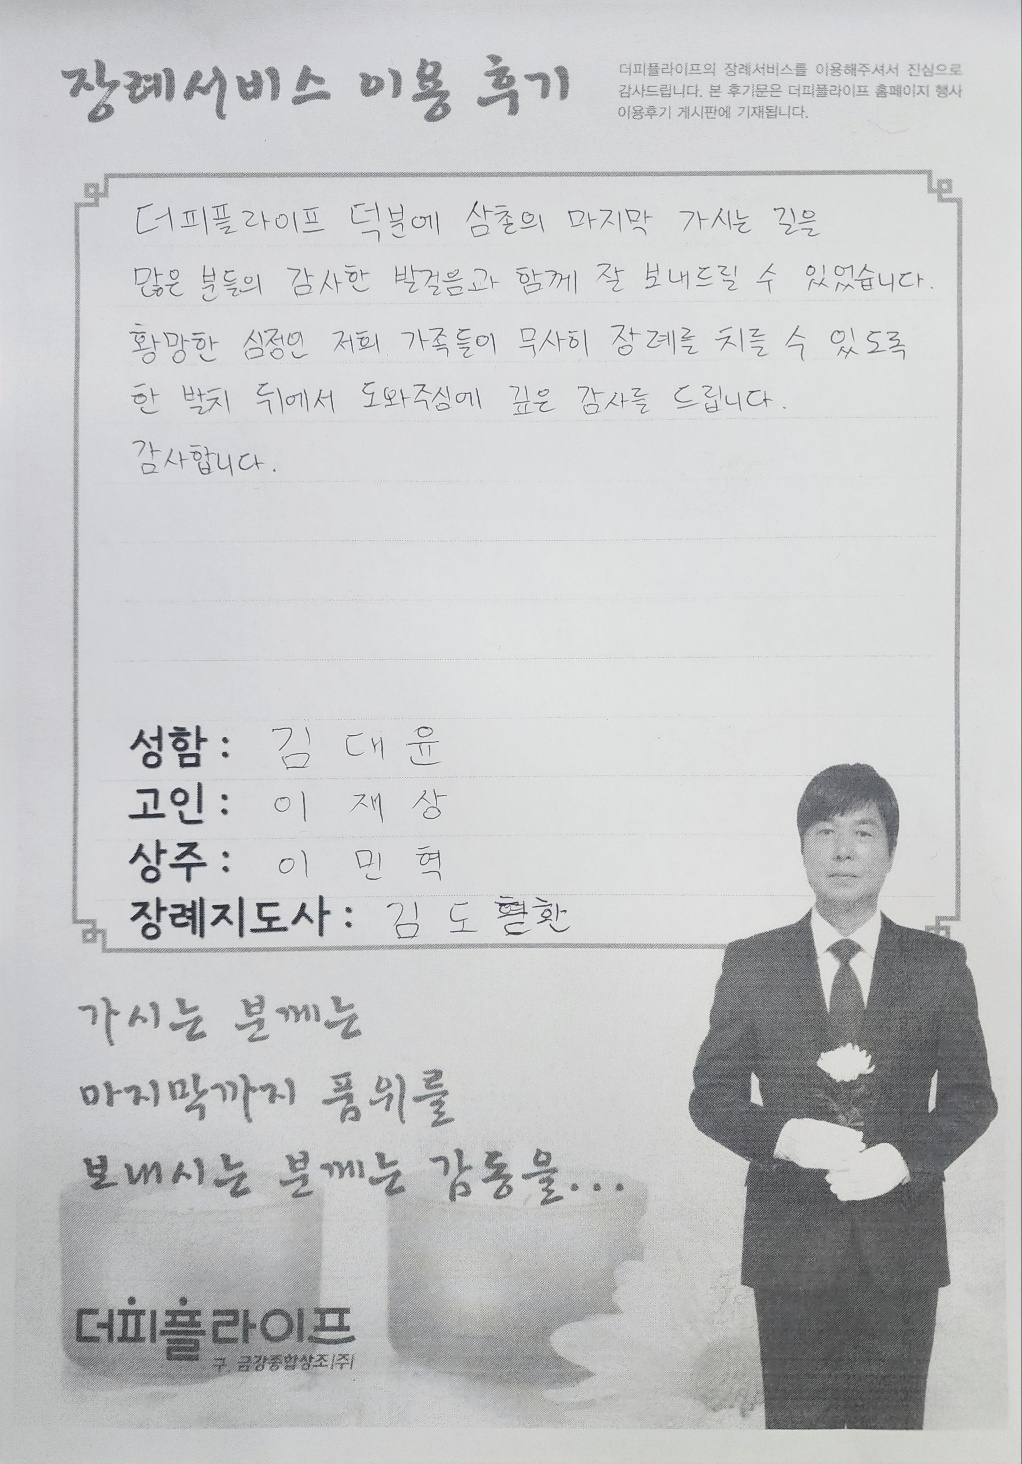 장례서비스 이용 후기
더피플라이프의 장례서비스를 이용해주셔서 진심으로
감사드립니다. 본 후기문은 더피플라이프 홈페이지 행사
이용후기 게시판에 기재됩니다.
더피플라이프 덕분에 삼촌의 마지막 가시는 길을
많은 분들의 감사한 발걸음과 함께 잘 보내드릴 수 있었습니다.
황망한 심정인 저희 가족들이 무사히 장례를 치를 수 있도록
한 발치 뒤에서 도와주심에 깊은 감사를 드립니다.
감사합니다.
성함 : 김 대 윤
고인 : 이 재 상
상주 : 이 민 혁
장례지도사 : 김 도 환
가시는 분께는
마지막까지 품위를
보내시는 분께는 감동을...
더피플라이프
구 금강종합상조(주)